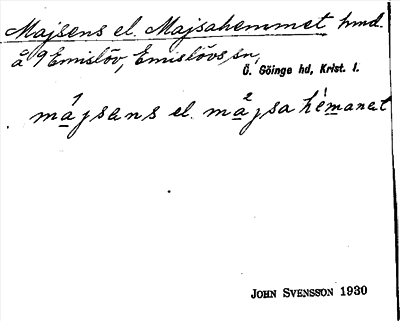 Majsens el. Majsahemmet hmd.
å 9 Emislöv, Emislövs sn,
Ö. Göinge hd, Krist. l.
májsans el. màjsa hémanet
JOHN SVENSSON 1930